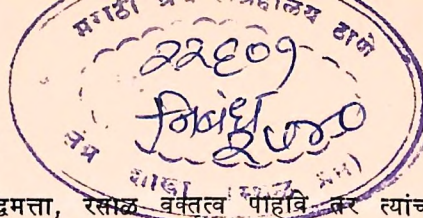 मराठी ग्रंथ संग्रहालय ठाणे
२२६०१
निबंध
७४०
शाखा
द्वमत्ता, रसाळ वक्तृत्व पाहावे तर त्यांच